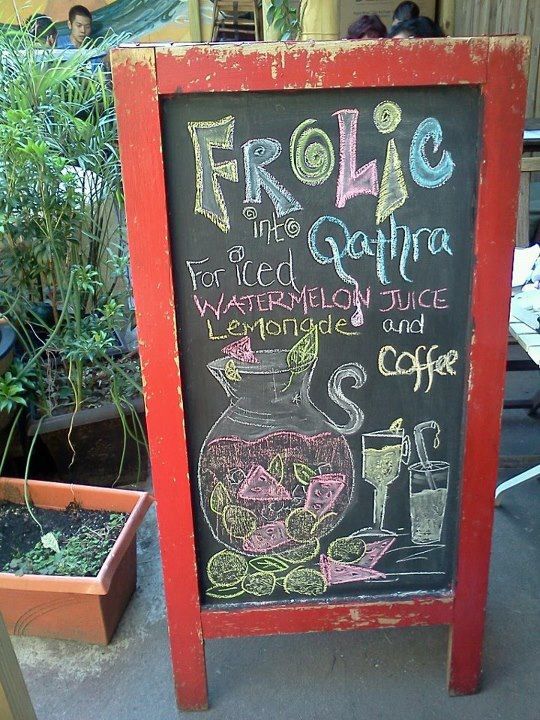 FROLiC
into Qathra
For iced
WATERMELON JUICE
Lemonade and
Coffee